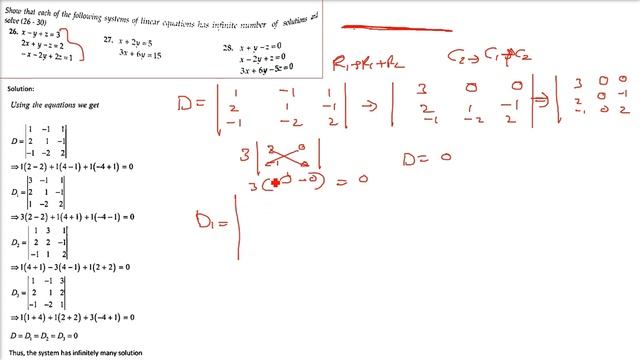 Show that each of the following systems of linear equations has infinite number of solutions and
solve (26 - 30)
26. x - y + z = 3
2x + y - z = 2
- x - 2y + 2z = 1
27. x + 2y = 5
3x + 6y = 15
28. x + y - z = 0
x - 2y + z = 0
3x + 6y - 5z = 0
Solution:
Using the equations we get
D = | 1 -1 1 |
| 2 1 -1 |
| -1 -2 2 |
⇒ 1(2-2)+1(4-1)+1(-4+1)=0
D₁ = | 3 -1 1 |
| 2 1 -1 |
| 1 -2 2 |
⇒ 3(2-2)+1(4+1)+1(-4-1)=0
D₂ = | 1 3 1 |
| 2 2 -1 |
| -1 1 2 |
⇒ 1(4+1)-3(4-1)+1(2+2)=0
| 1 -1 3 |
| 2 1 2 |
| -1 -2 1 |
⇒ 1(1+4)+1(2+2)+3(-4+1)=0
D = D₁ = D₂ = D₃ = 0
Thus, the system has infinitely many solution
R₁→R₁+R₂ C₂→C₁ C₂
D = | 1 -1 1 | ⇒ | 3 0 0 | ⇒ | 3 0 0 |
| 2 1 -1 | | 2 1 -1 | | 2 0 -1 |
| -1 -2 2 | | -1 -2 2 | | -1 0 2 |
D = 0
= 0
D₁ =